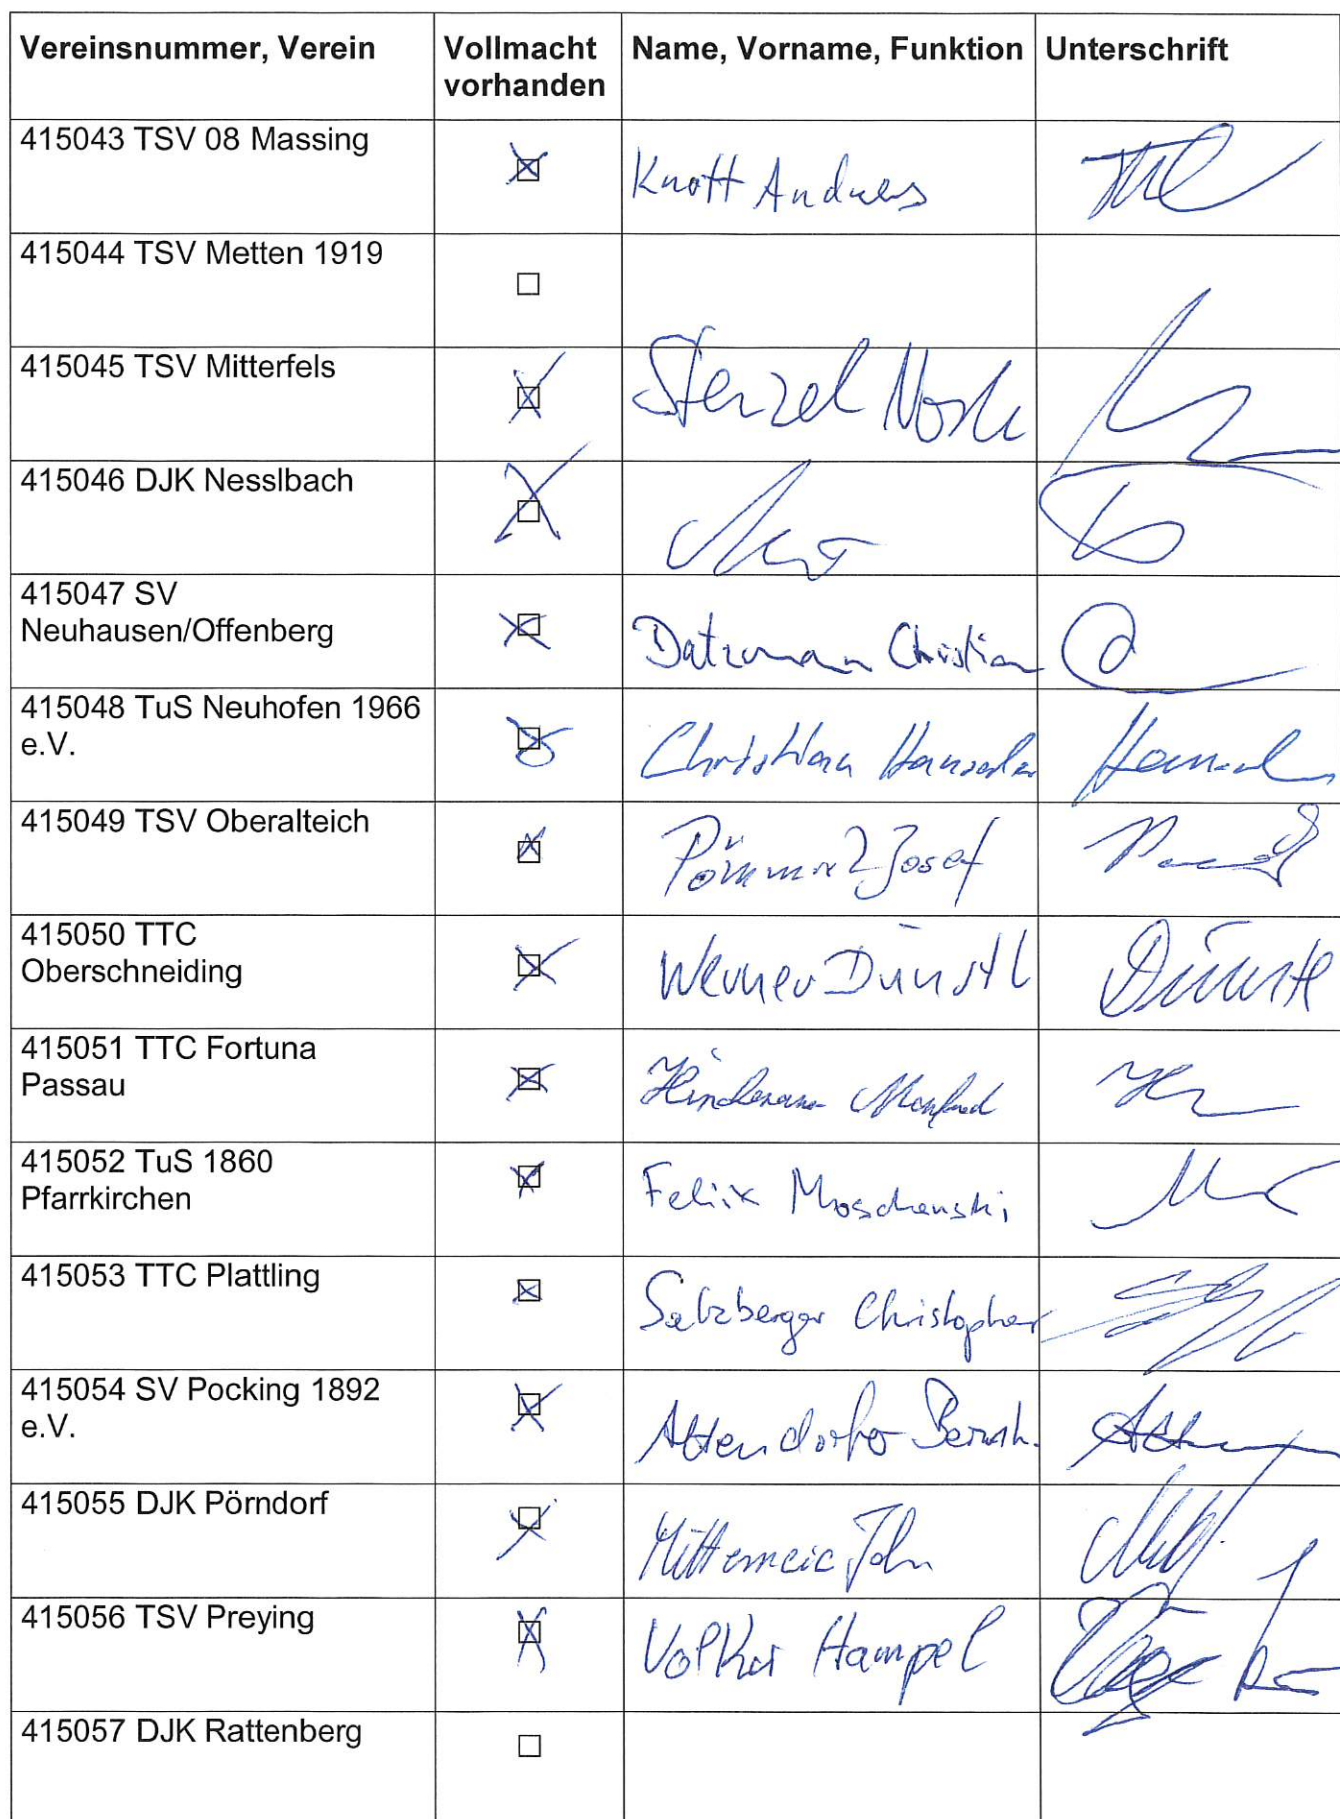 Vereinsnummer, Verein Vollmacht vorhanden Name, Vorname, Funktion Unterschrift
415043 TSV 08 Massing
Knott Andreas
415044 TSV Metten 1919
415045 TSV Mitterfels
Stenzel
415046 DJK Nesslbach
415047 SV
Neuhausen/Offenberg
Datzmann Christian
415048 TuS Neuhofen 1966
e.V.
Christian
415049 TSV Oberalteich
Josef
415050 TTC
Oberschneiding
Werner Dünstl
Dünstl
415051 TTC Fortuna
Passau
Manfred
415052 TuS 1860
Pfarrkirchen
Felix Moschanski
415053 TTC Plattling
Salzberger Christopher
415054 SV Pocking 1892
e.V.
Attendorfer
415055 DJK Pörndorf
John
415056 TSV Preying
Volker Hampel
415057 DJK Rattenberg